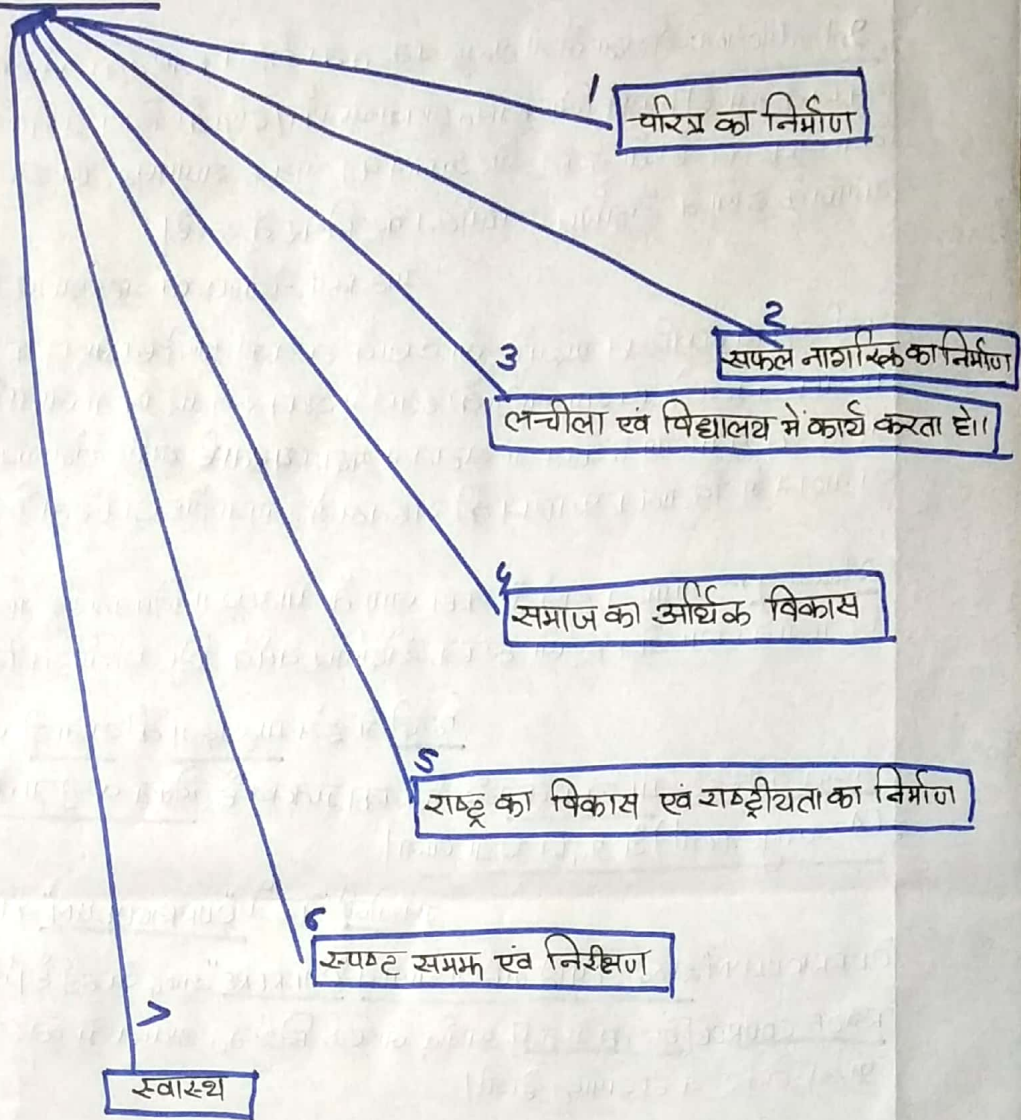 1
चरित्र का निर्माण
2
सफल नागरिक का निर्माण
3
लचीला एवं विद्यालय में कार्य करता हो।
4
समाज का आर्थिक विकास
5
राष्ट्र का विकास एवं राष्ट्रीयता का निर्माण
6
स्पष्ट समझ एवं निरीक्षण
7
स्वास्थ